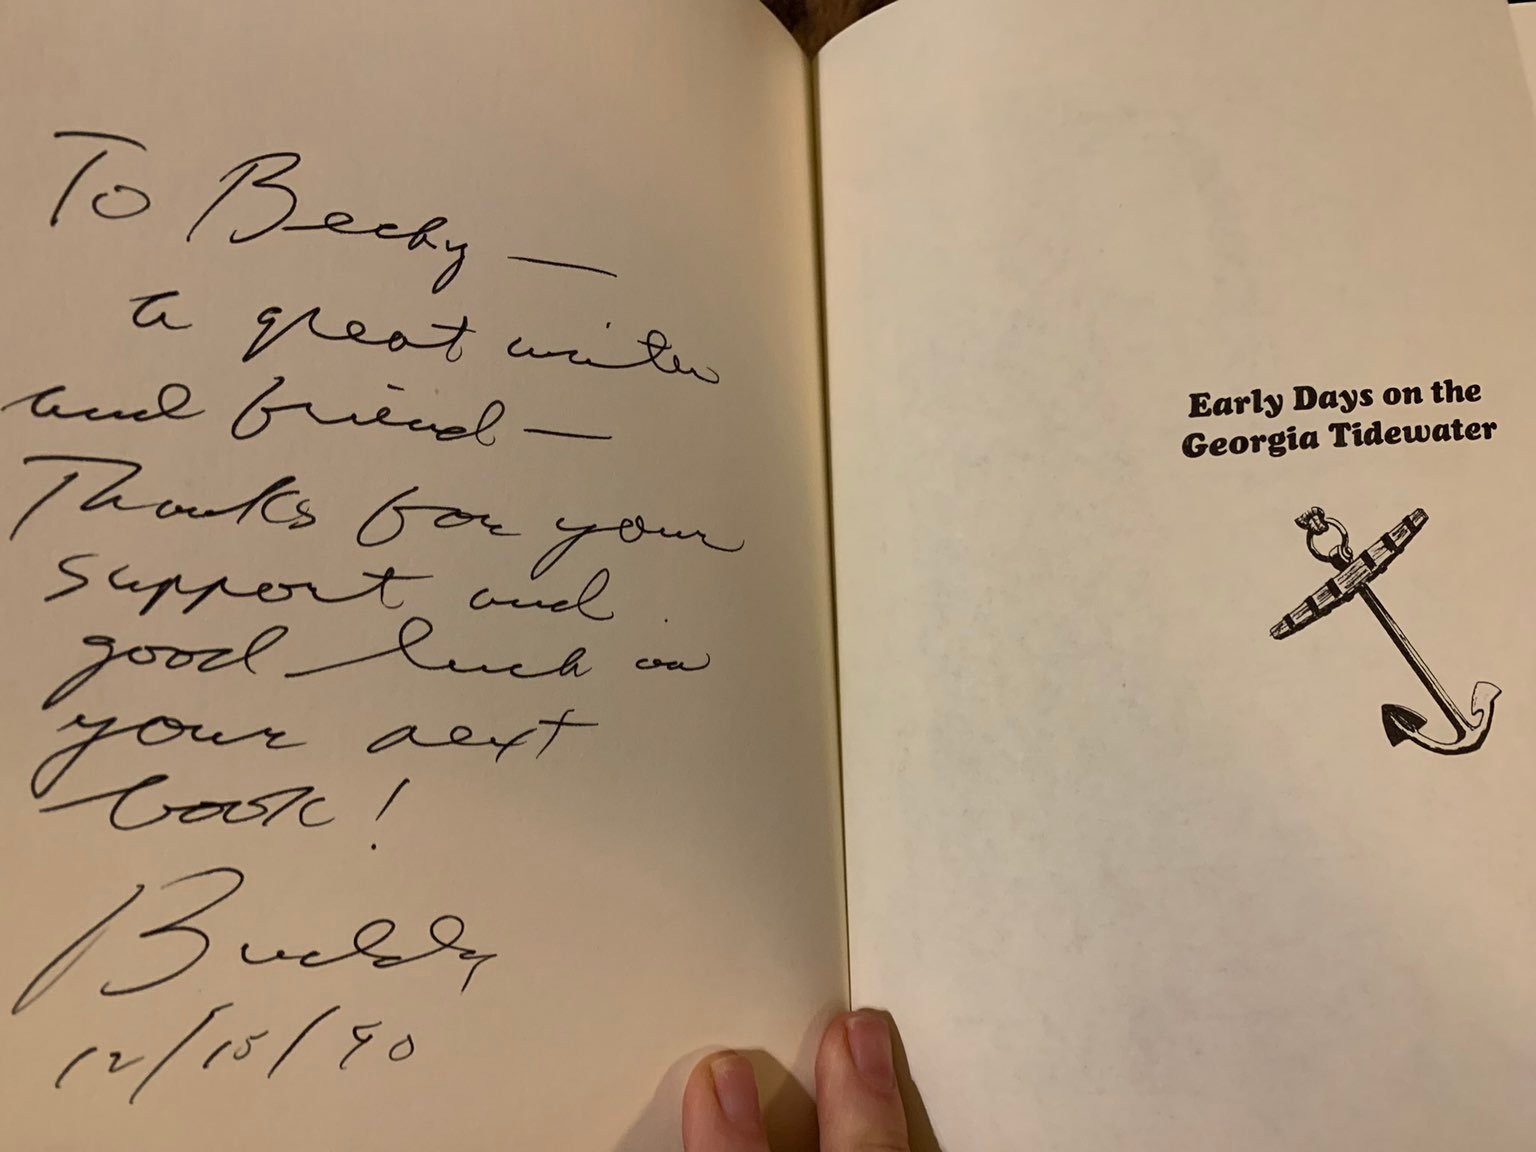 To Becky —
a great writer
and friend —
Thanks for your
support and
good luck on
your next
book!
Buddy
12/15/90
Early Days on the
Georgia Tidewater